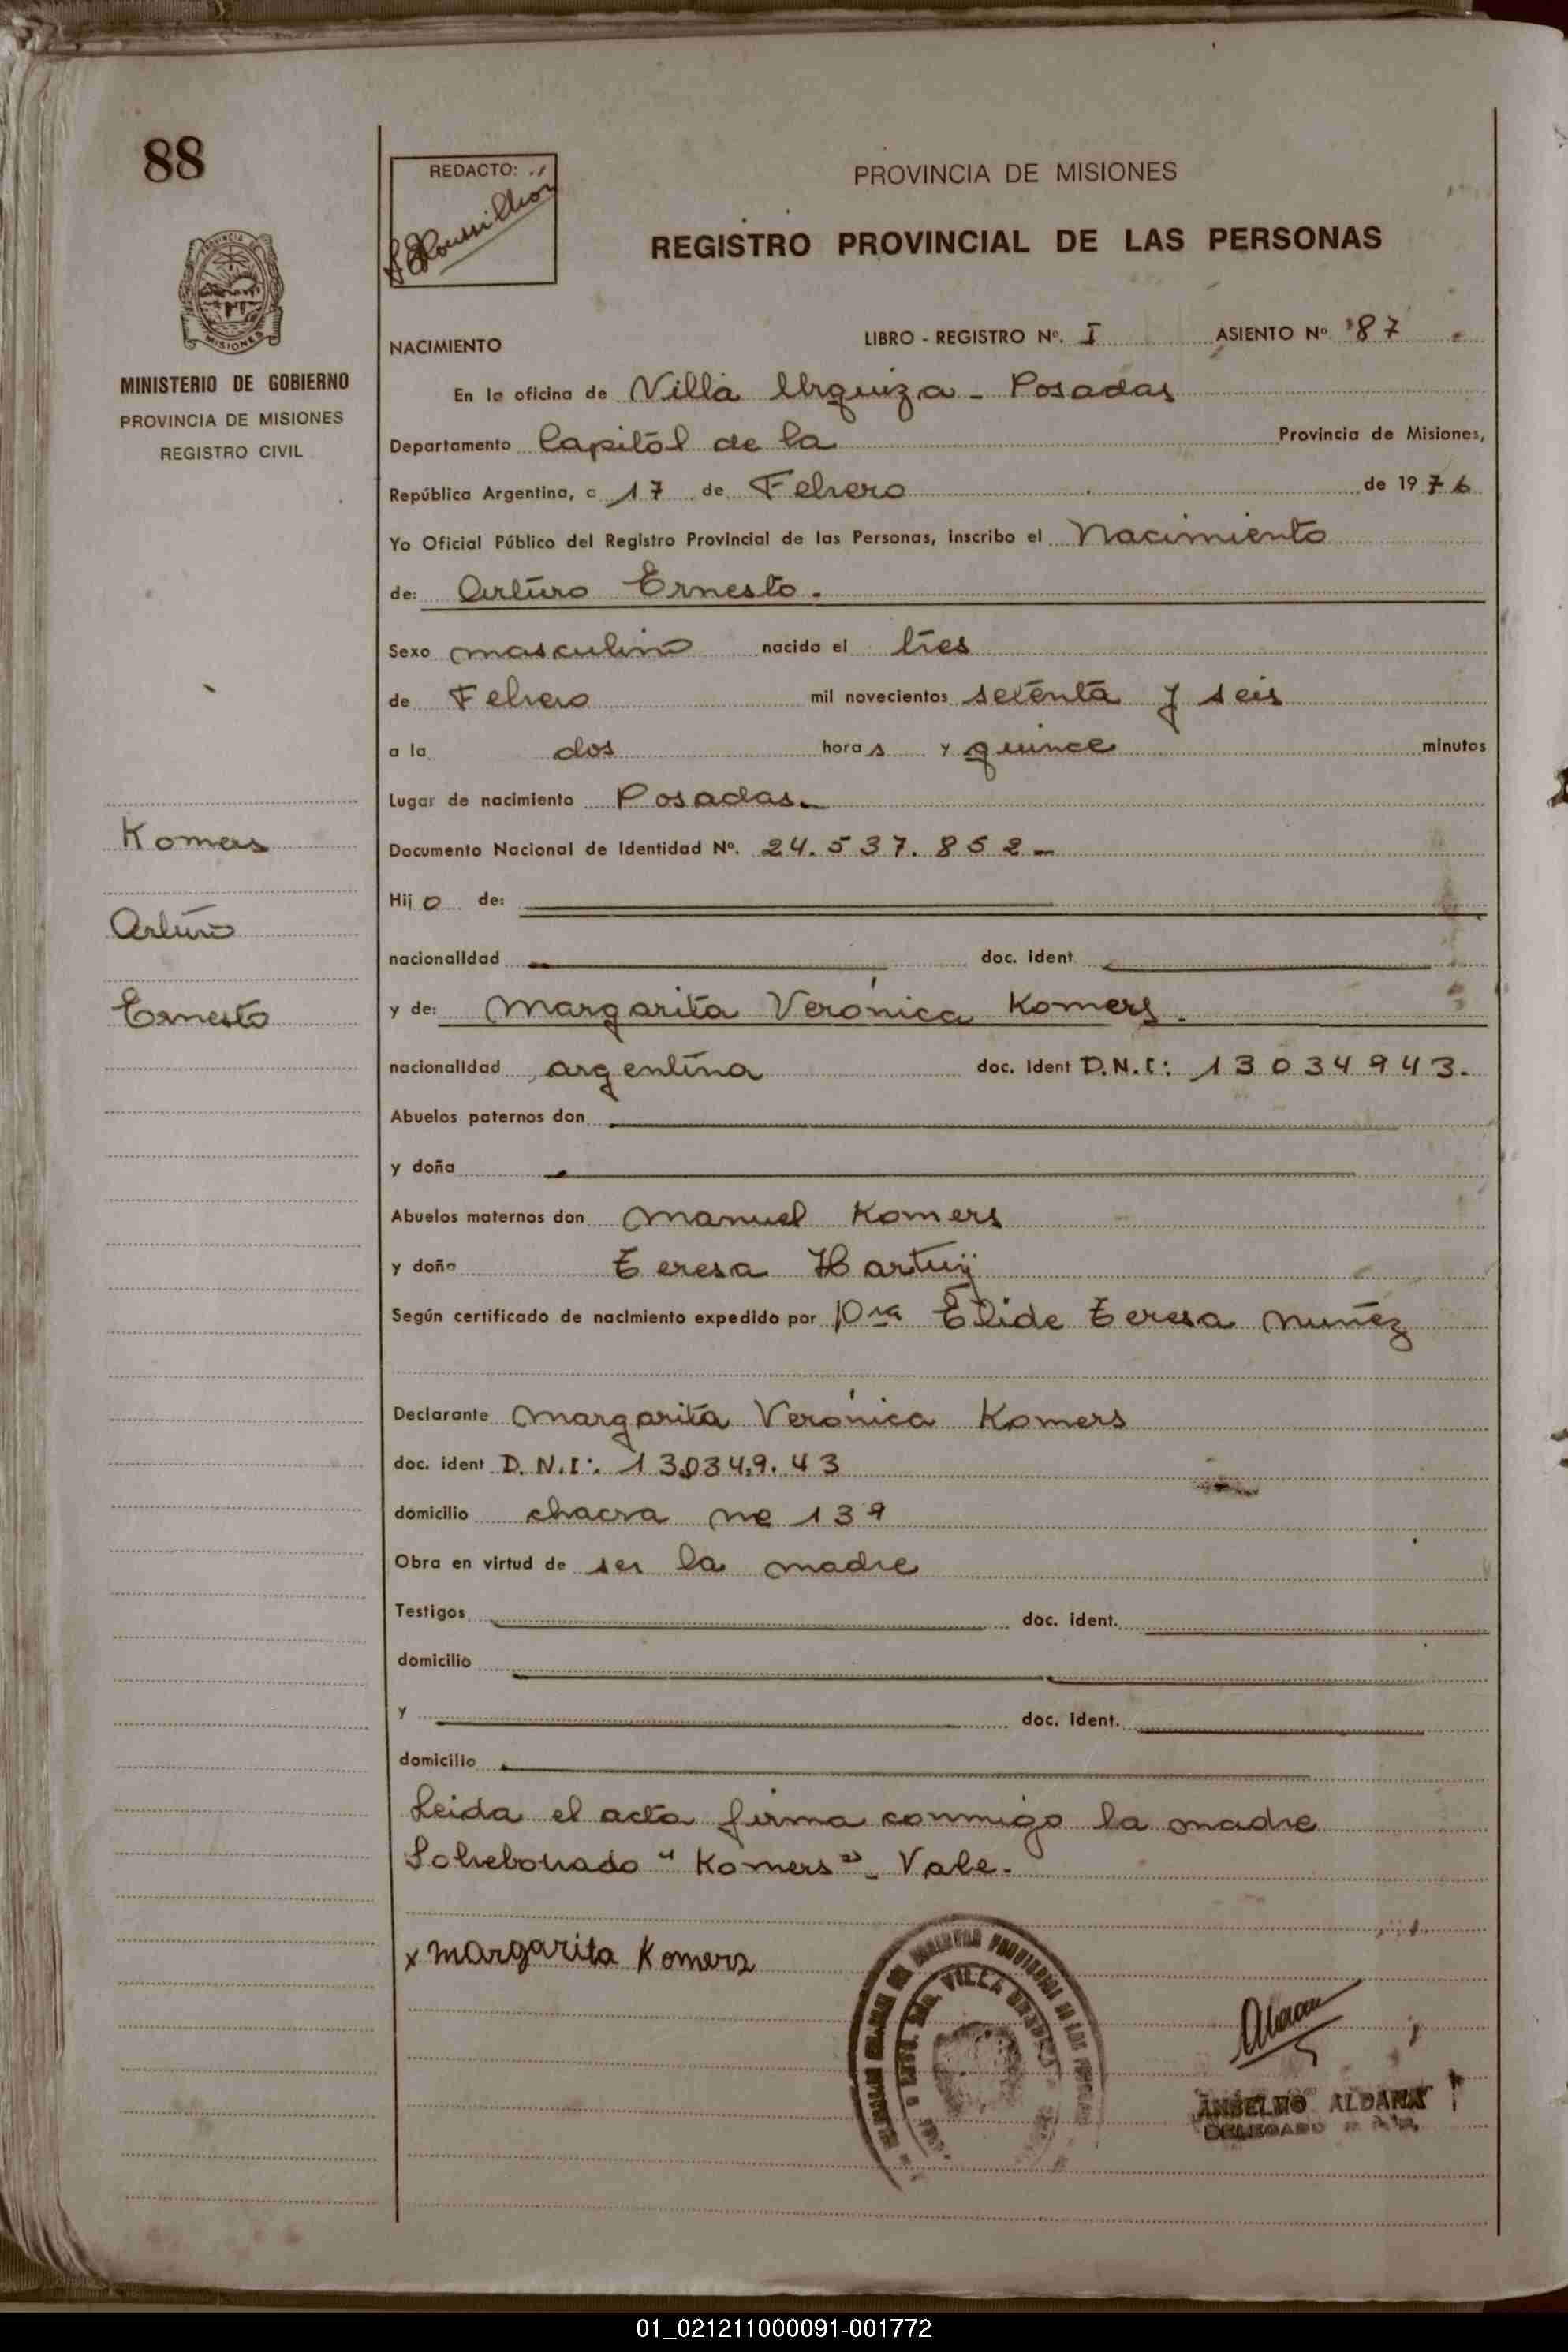 88
REDACTO:
PROVINCIA DE MISIONES
REGISTRO PROVINCIAL DE LAS PERSONAS
MISIONES
MINISTERIO DE GOBIERNO
PROVINCIA DE MISIONES
REGISTRO CIVIL
NACIMIENTO LIBRO - REGISTRO Nº. I ASIENTO Nº. 87
En la oficina de Villa Urquiza - Posadas
Departamento Capital de la Provincia de Misiones,
República Argentina, a 17 de Febrero de 1976
Yo Oficial Público del Registro Provincial de las Personas, inscribo el Nacimiento
de: Arturo Ernesto.
Sexo masculino nacido el tres
de Febrero mil novecientos setenta y seis
a la dos horas y quince minutos
Lugar de nacimiento Posadas.
Komers
Documento Nacional de Identidad Nº. 24.537.852
Hijo de:
Arturo
nacionalidad doc. ident
Ernesto
y de: Margarita Verónica Komers.
nacionalidad argentina doc. ident D.N.I: 13034943.
Abuelos paternos don
y doña
Abuelos maternos don Manuel Komers
y doña Teresa
Según certificado de nacimiento expedido por Dra Elide Teresa Nuñez
Declarante Margarita Verónica Komers
doc. ident D.N.I: 13.034.9.43
domicilio chacra no 139
Obra en virtud de ser la madre
Testigos doc. ident.
domicilio
y doc. ident.
domicilio
Leida el acta firma conmigo la madre
Sobreborrado "Komers" - Vale.
x Margarita Komers
VILLA
ANSELMO ALDANA
DELEGADO
01_021211000091-001772